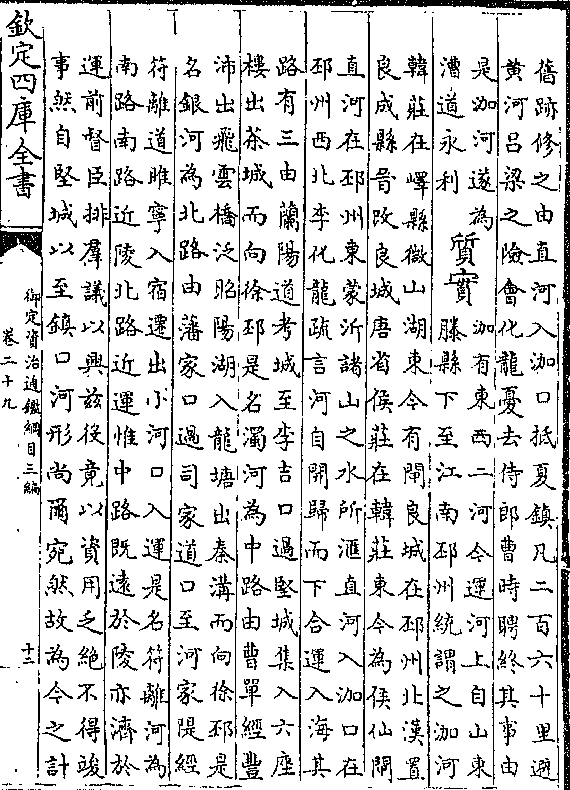 舊跡修之由直河入泇口抵夏鎮凡二百六十里避
黃河呂梁之險會化龍憂去侍郎曹時聘終其事由
是泇河遂為
漕道永利
質實
泇有東西二河今運河上自山東
滕縣下至江南邳州統謂之泇河
韓莊在嶧縣微山湖東今有閘良城在邳州北漢置
良成縣晉改良城唐省侯莊在韓莊東今為侯仙閘
直河在邳州東蒙沂諸山之水所滙直河入泇口在
邳州西北李化龍疏言河自開歸而下合運入海其
路有三由蘭陽道考城至李吉口過堅城集入六座
樓出茶城而向徐邳是名濁河為中路由曹單經豐
沛出飛雲橋泛昭陽湖入龍塘出秦溝而向徐邳是
名銀河為北路由潘家口過司家道口至何家隄經
符離道睢寧入宿遷出小河口入運是名符離河為
南路南路近陵北路近運惟中路既遠於陵亦濟於
運前督臣排羣議以興兹役竟以資用乏絶不得竣
事然自堅城以至鎮口河形尚爾宛然故為今之計
欽定四庫全書
御定資治通鑑綱目三編
卷二十九
十三